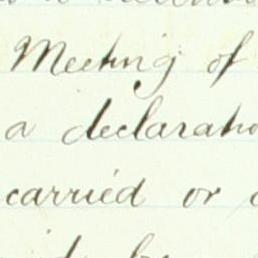 Meeting of
a declaratio
carried or